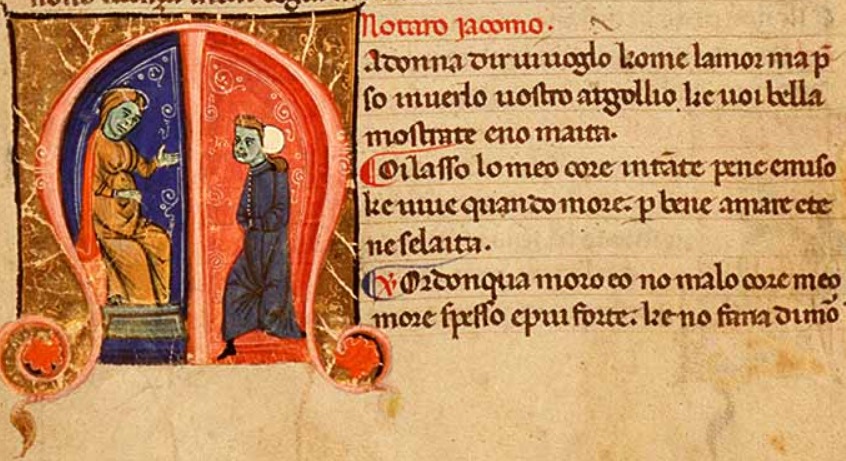 Notaro Jacomo.
Adonna diruiuoglo kome lamor map̄
so inuerlo uostro argollio ke uoi bella
mostrate eno maita.
Oilasso lomeo core intāte pene emiso
ke uiue quando more. p bene amare ete
neselaita.
Or donqua moro eo no malo core meo
more spesso epiu forte. ke no faria dimō